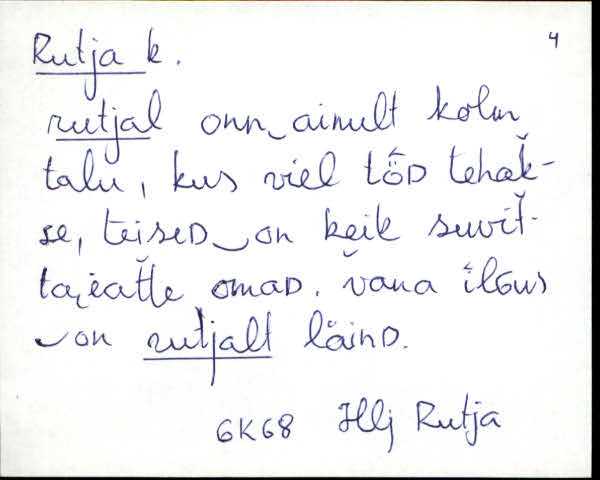 Rutja k. 4
rutjal onn‿ainult kolm
talu, kus viel tôD tehak̆-
se, teiseD‿on keik suvit̆-
tajeat̆le omaD. v̆ana ilGus
‿on rutjalt läinD.
GK68 Hlj Rutja